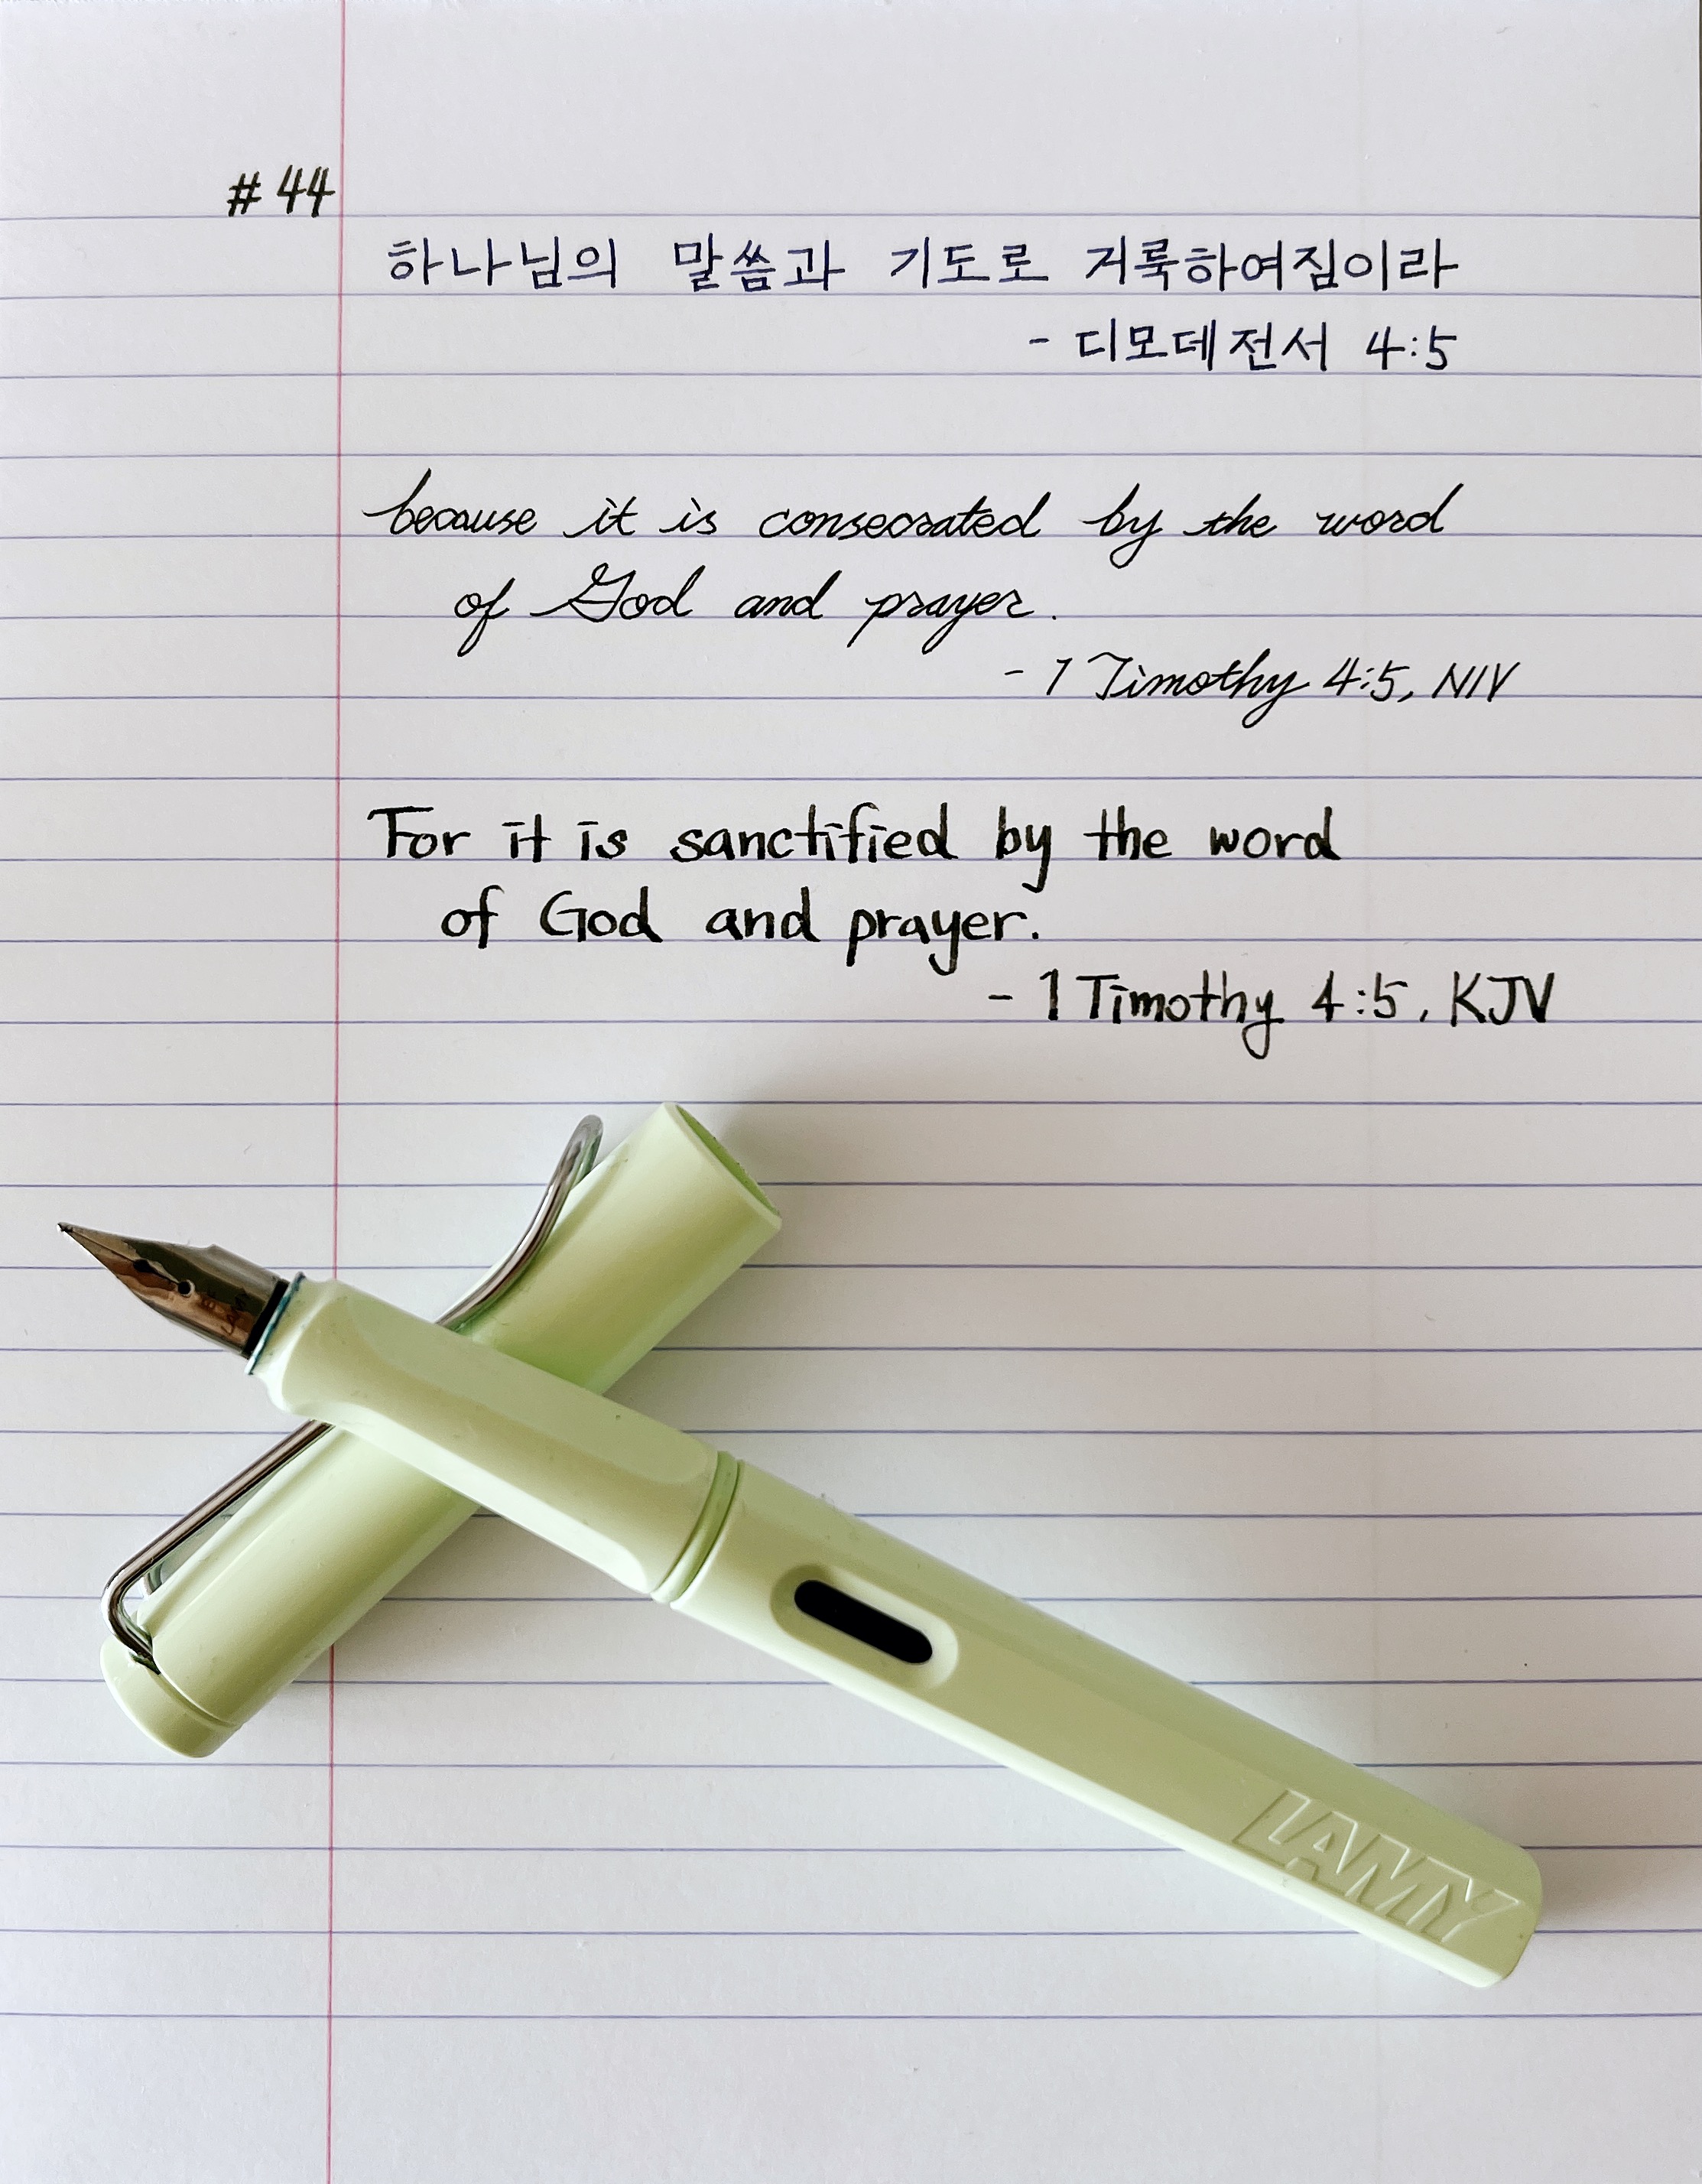 # 44
하나님의 말씀과 기도로 거룩하여짐이라
- 디모데전서 4:5
because it is consecrated by the word
of God and prayer.
- 1 Timothy 4:5, NIV
For it is sanctified by the word
of God and prayer.
- 1 Timothy 4:5, KJV
LAMY